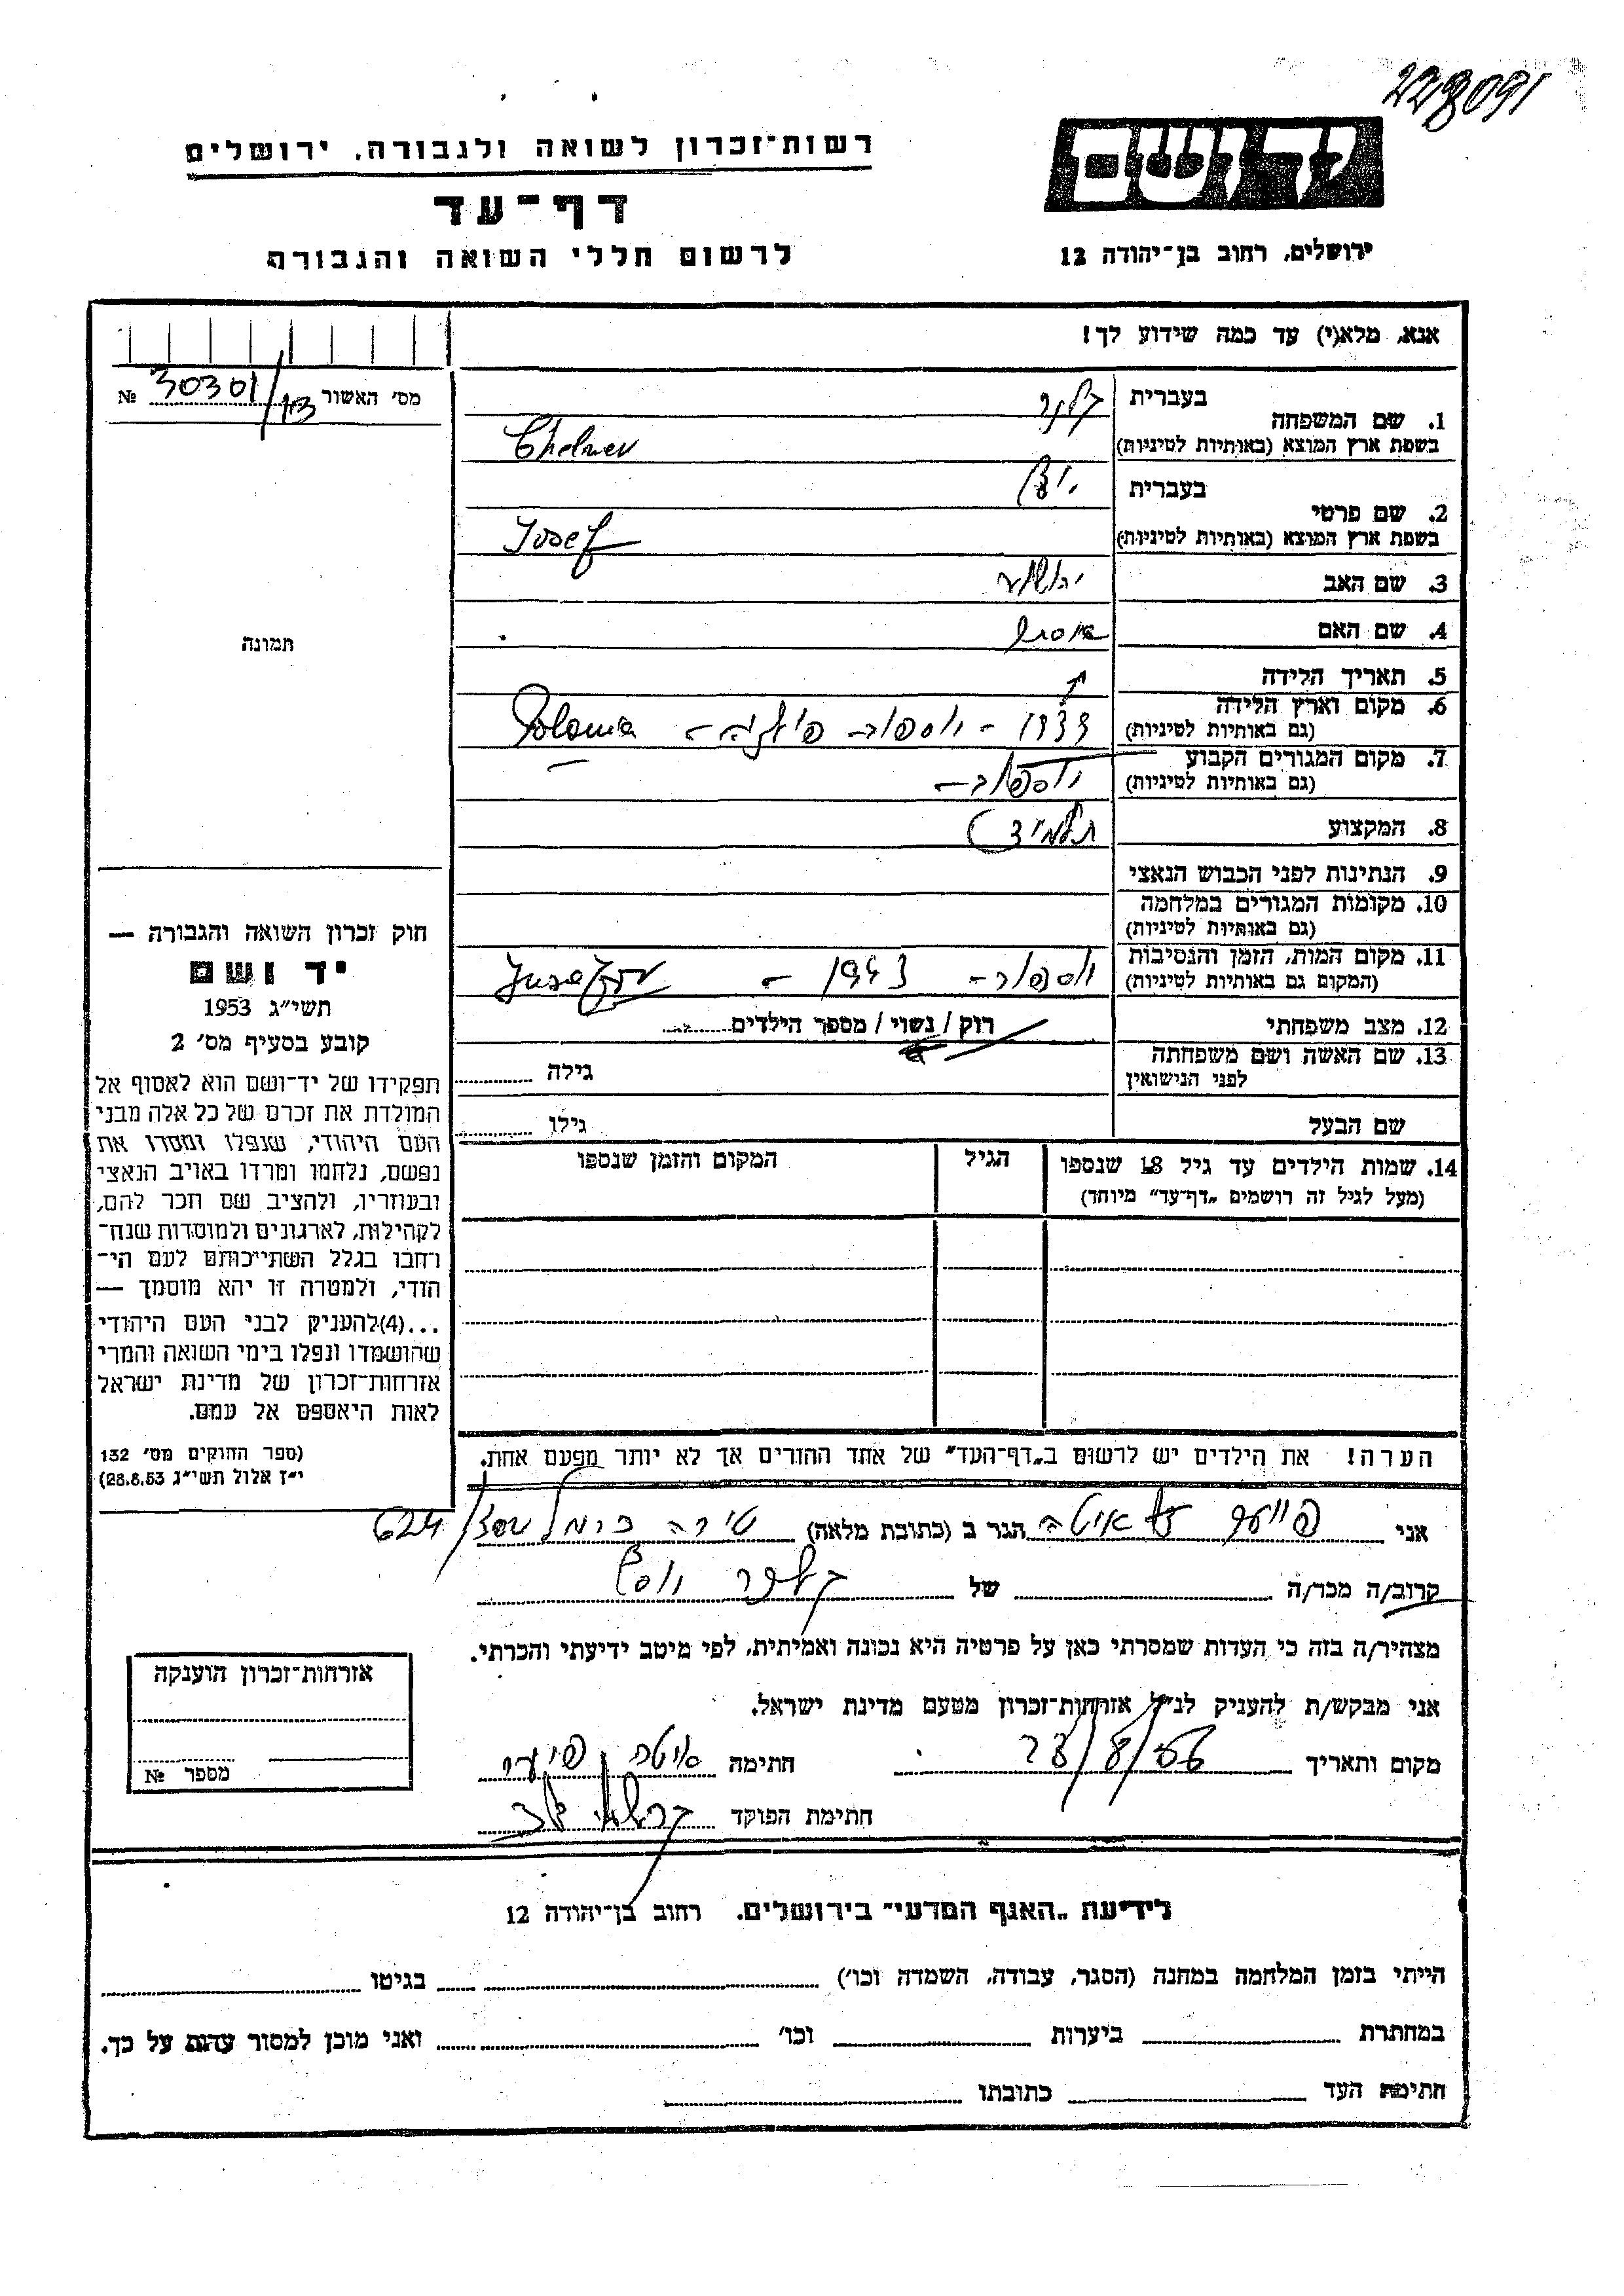 228091
רשות־זכרון לשואה ולגבורה, ירושלים
יד ושם
דף־עד
לרשום חללי השואה והגבורה
ירושלים, רחוב בן־יהודה 12
אנא, מלא(י) עד כמה שידוע לך!
מס' האשור 30301/13 №
תמונה
בעברית
1. שם המשפחה
בשפת ארץ המוצא (באותיות לטיניות) Chelmer
בעברית
2. שם פרטי
בשפת ארץ המוצא (באותיות לטיניות) Josef
3. שם האב יהושע
4. שם האם
5. תאריך הלידה
6. מקום וארץ הלידה
(גם באותיות לטיניות) Polonia
7. מקום המגורים הקבוע
(גם באותיות לטיניות)
8. המקצוע תלמיד
9. הנתינות לפני הכבוש הנאצי
10. מקומות המגורים במלחמה
(גם באותיות לטיניות)
11. מקום המות, הזמן והנסיבות
(המקום גם באותיות לטיניות) 1943 –
12. מצב משפחתי רוק / נשוי / מספר הילדים
13. שם האשה ושם משפחתה
לפני הנישואין גילה
שם הבעל גילו
14. שמות הילדים עד גיל 18 שנספו הגיל המקום והזמן שנספו
(מעל לגיל זה רושמים „דף־עד" מיוחד)
הערה! את הילדים יש לרשום ב„דף־העד" של אחד ההורים אך לא יותר מפעם אחת.
חוק זכרון השואה והגבורה —
יד ושם
תשי״ג 1953
קובע בסעיף מס' 2
תפקידו של יד־ושם הוא לאסוף אל
המולדת את זכרם של כל אלה מבני
העם היהודי, שנפלו ומסרו את
נפשם, נלחמו ומרדו באויב הנאצי
ובעוזריו, ולהציב שם וזכר להם,
לקהילות, לארגונים ולמוסדות שנח־
רחבו בגלל השתייכותם לעם הי־
הודי, ולמטרה זו יהא מוסמך —
...(4)להעניק לבני העם היהודי
שהושמדו ונפלו בימי השואה והמרי
אזרחות־זכרון של מדינת ישראל
לאות היאספם אל עמם.
(ספר החוקים מס' 132
י״ז אלול תשי״ג 28.8.53)
אני הגר ב (כתובת מלאה) טירה כרמל 624/
קרוב/ה מכר/ה של
מצהיר/ה בזה כי העדות שמסרתי כאן על פרטיה היא נכונה ואמיתית, לפי מיטב ידיעתי והכרתי.
אני מבקש/ת להעניק לנ״ל אזרחות־זכרון מטעם מדינת ישראל.
מקום ותאריך 23/8/56 חתימה איטה
חתימת הפוקד
אזרחות־זכרון הוענקה
מספר №
לידיעת „האגף המדעי״ בירושלים, רחוב בן־יהודה 12
הייתי בזמן המלחמה במחנה (הסגר, עבודה, השמדה וכו') בגיטו
במחתרת ביערות וכו' ואני מוכן למסור עדות על כך.
חתימת העד כתובתו